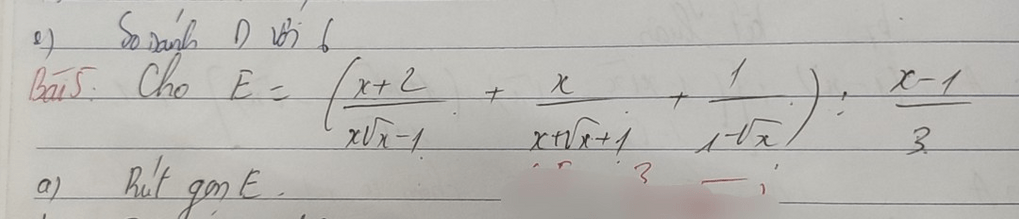 e) So sánh D với 6
Bài 5. Cho E = (x+2 / x√x-1 + x / x+√x+1 + 1 / 1-√x) : x-1 / 3
a) Rút gọn E.